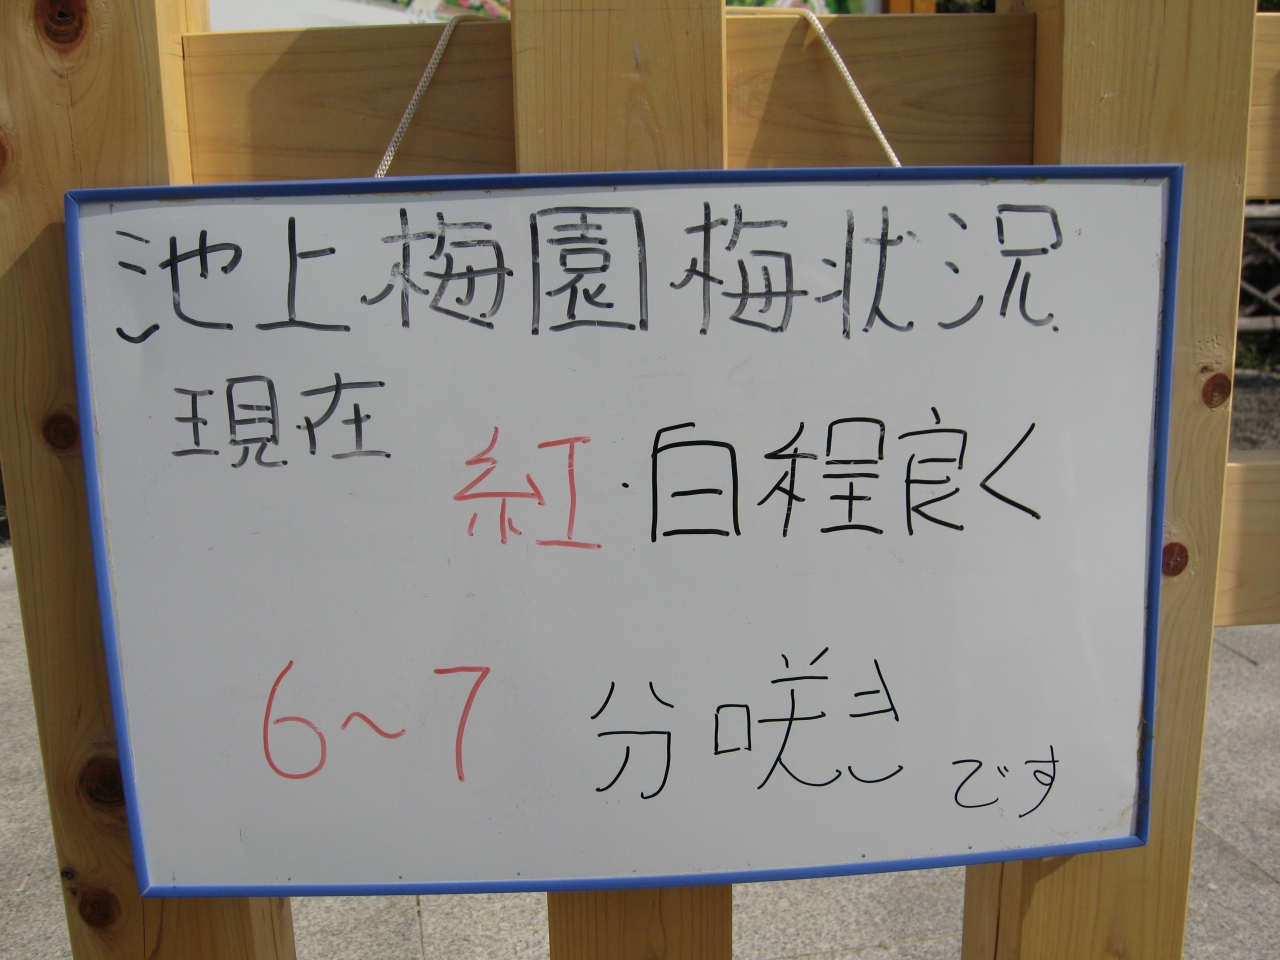 池上梅園梅状況
現在
紅・白程良く
6〜7 分咲き です